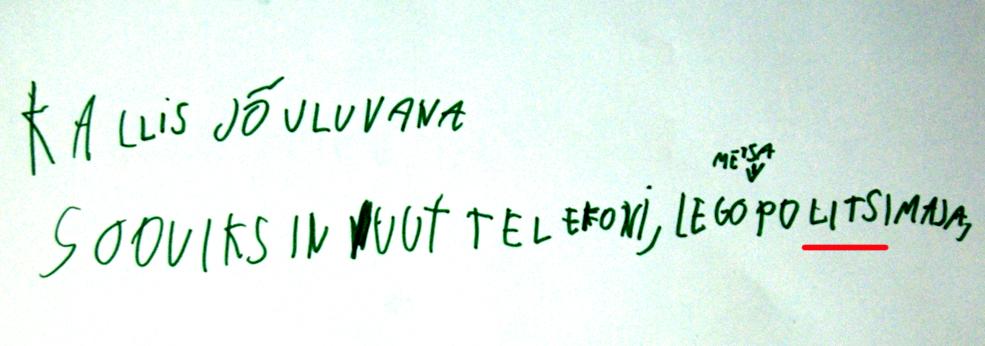 KALLIS JÕULUVANA
METSA
SOOVIKSIN UUT TELEKONI, LEGOPOLITSIMAJA,